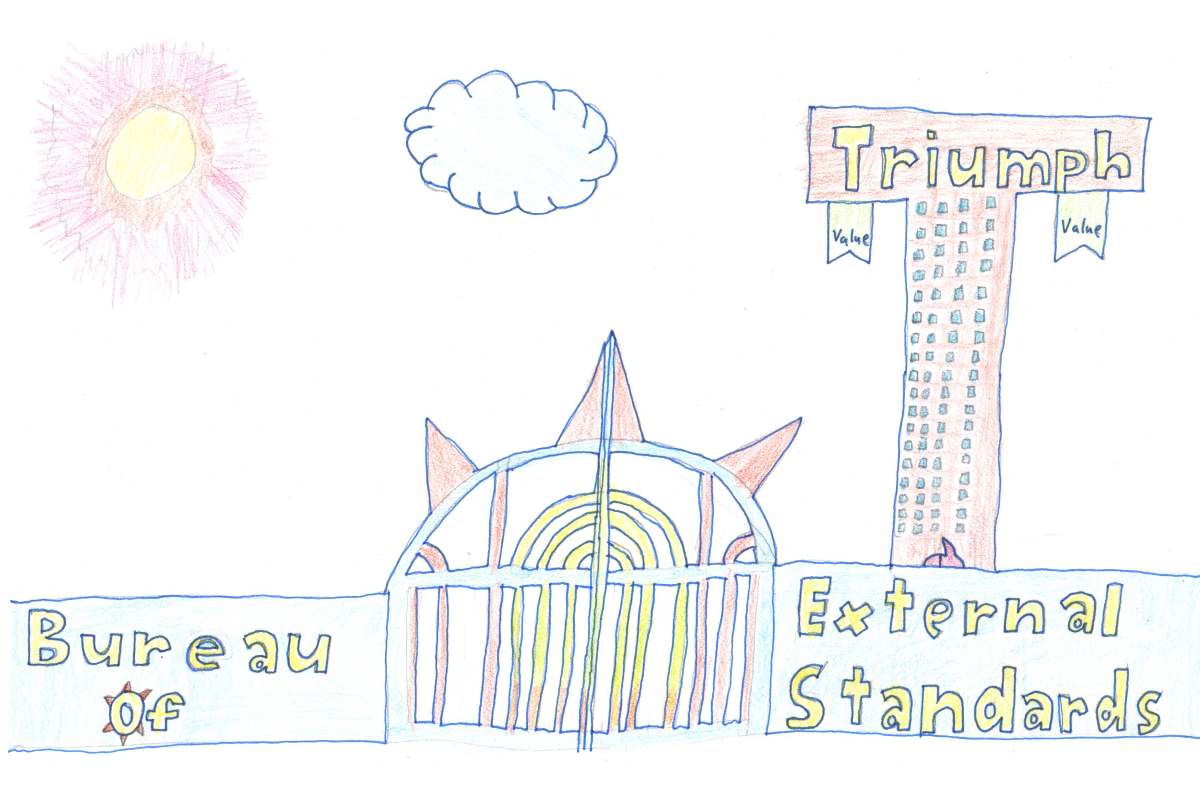 Triumph
Value
Value
Bureau
Of
External
Standards